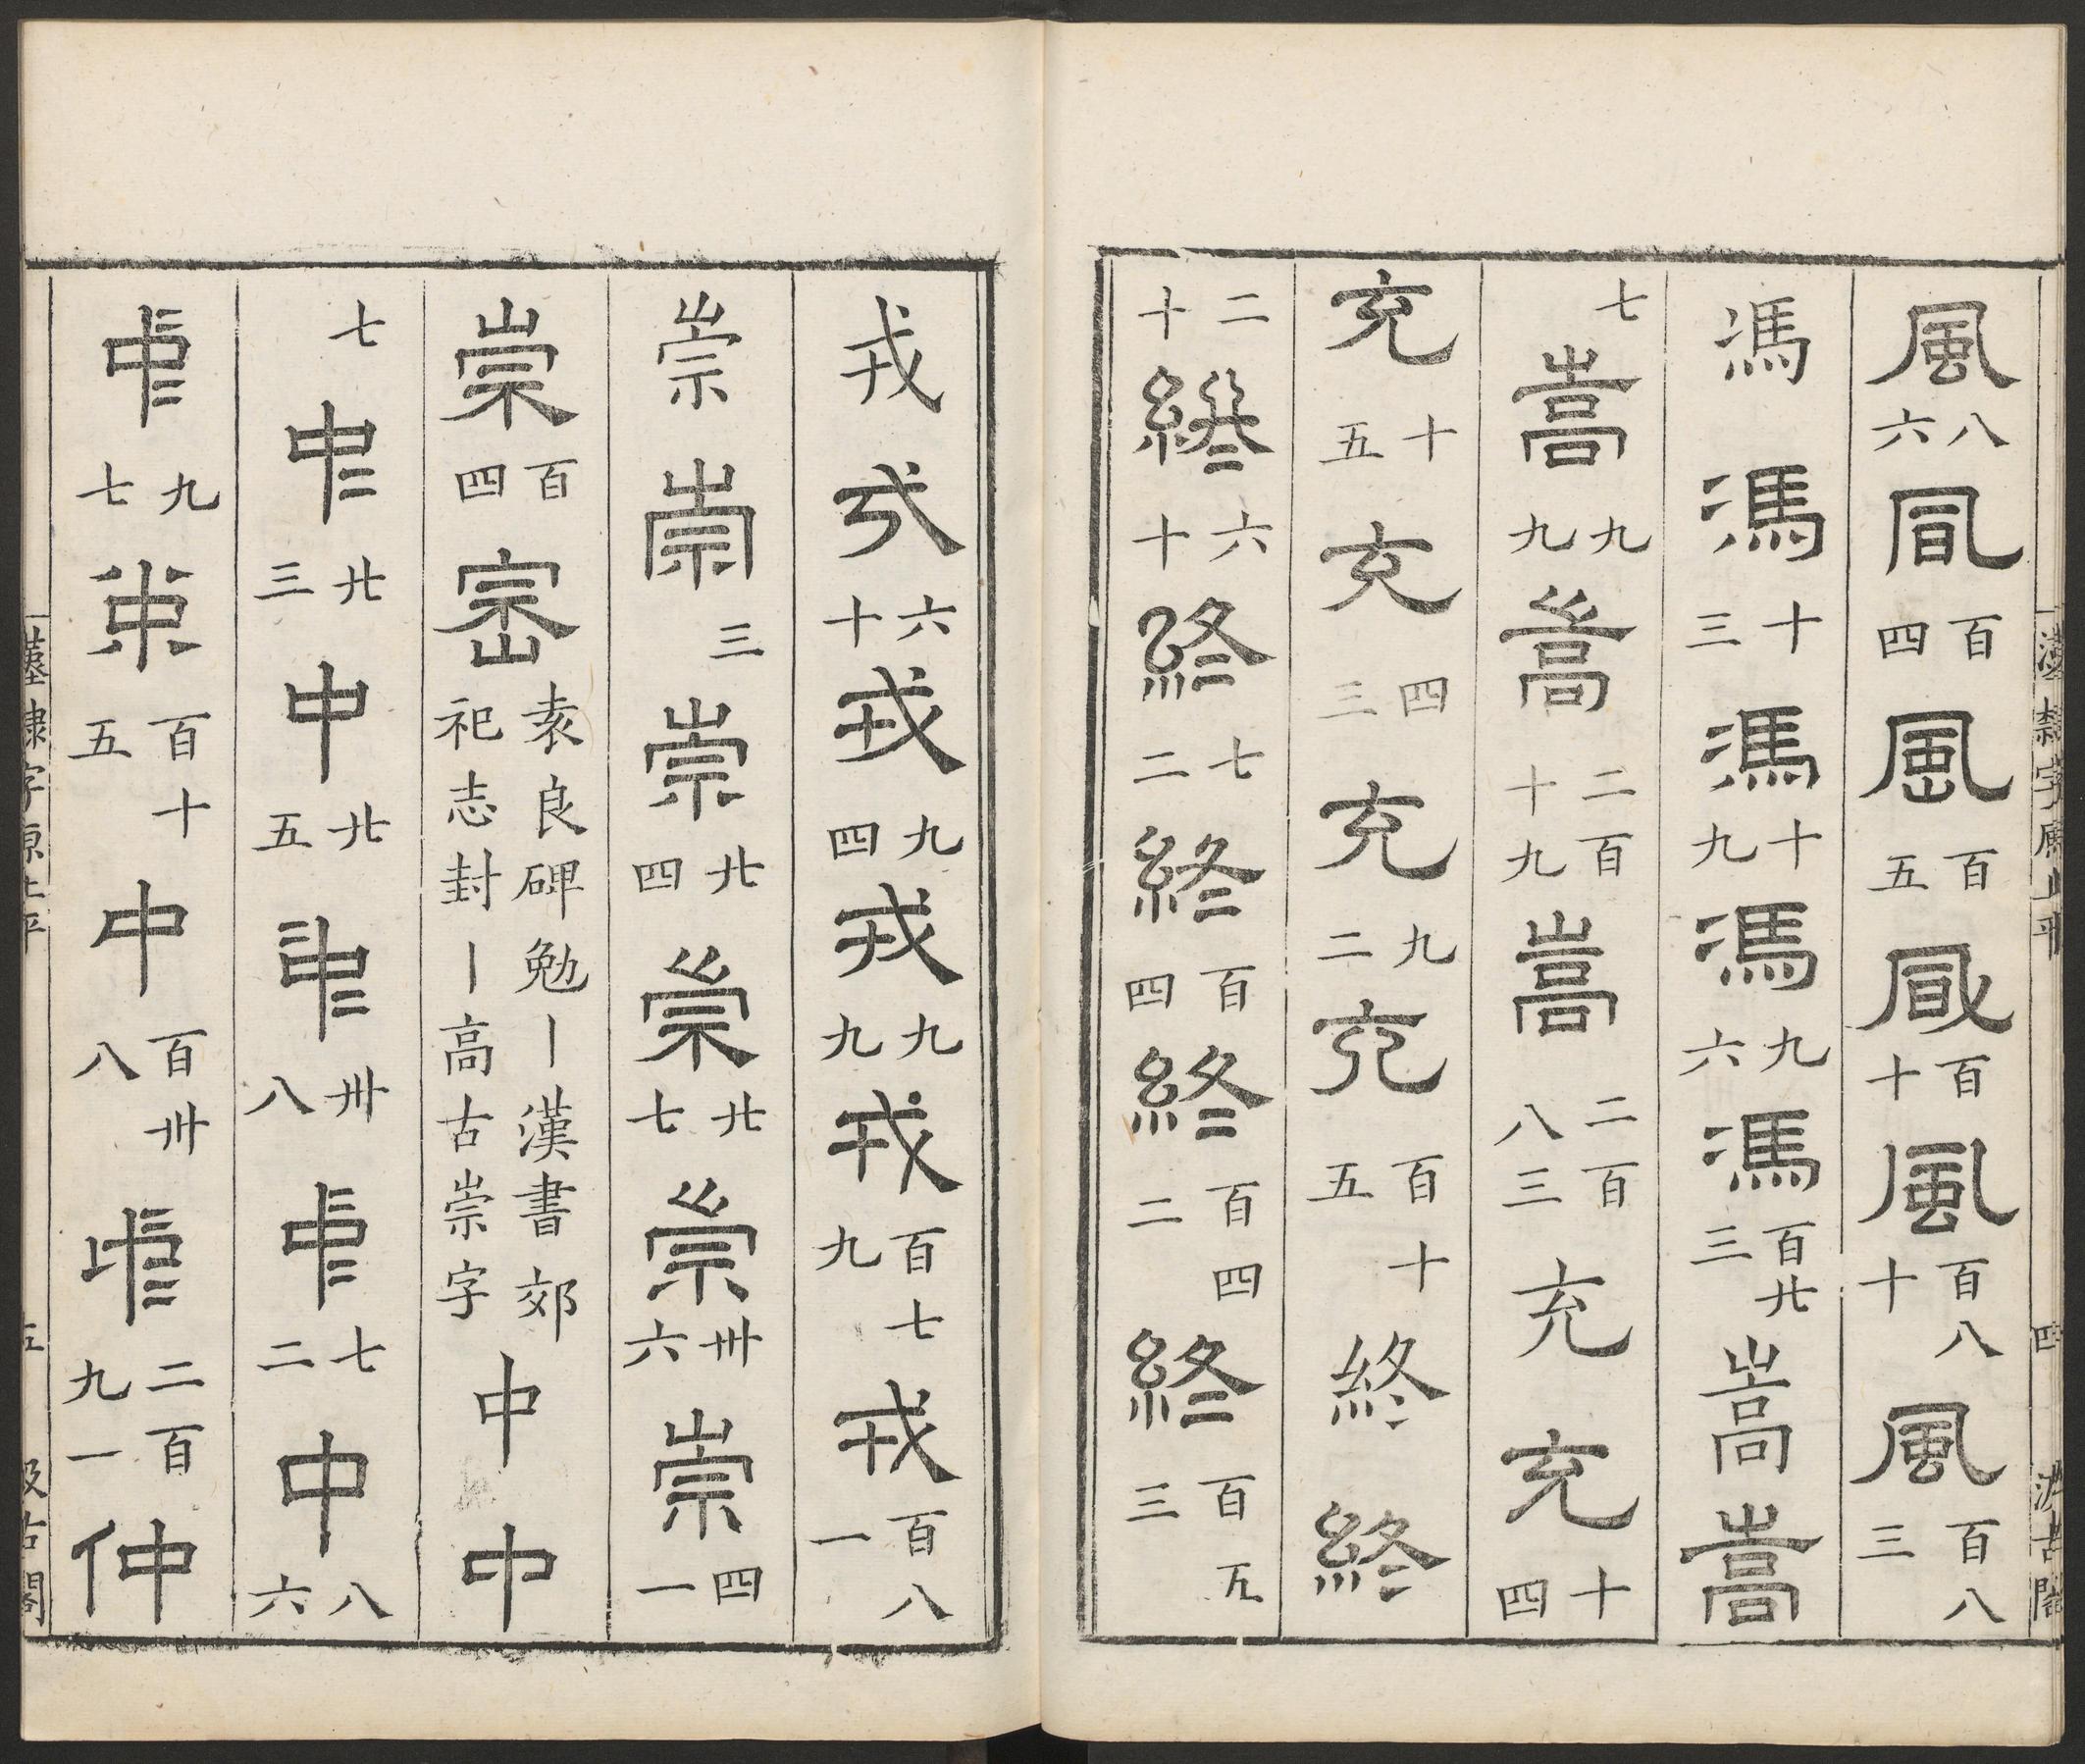 風 八六 風 百四 風 百五 風 百十 風 百八十 風 百八三
馮 馮 十三 馮 十九 馮 九六 馮 百廿三 嵩 嵩
七 嵩 九九 嵩 二百十九 嵩 二百八三 充 充 十四
充 十五 充 四三 充 九二 充 百十五 終 終
二十 終 六十 終 七二 終 百四 終 百四二 終 百三
漢隸字原上平 四 汲古閣
戎 戎 六十 戎 九四 戎 九九 戎 百七九 戎 百八一
崇 崇 三 崇 廿四 崇 廿七 崇 卅六 崇 四一
崇 百四 崈 袁良碑勉丨漢書郊祀志封丨丨高古崇字 中 中
七 中 廿三 中 廿五 中 卅八 中 七二 中 八六
中 九七 中 百十五 中 百卅八 中 二百九一 仲
漢隸字原上平 五 汲古閣